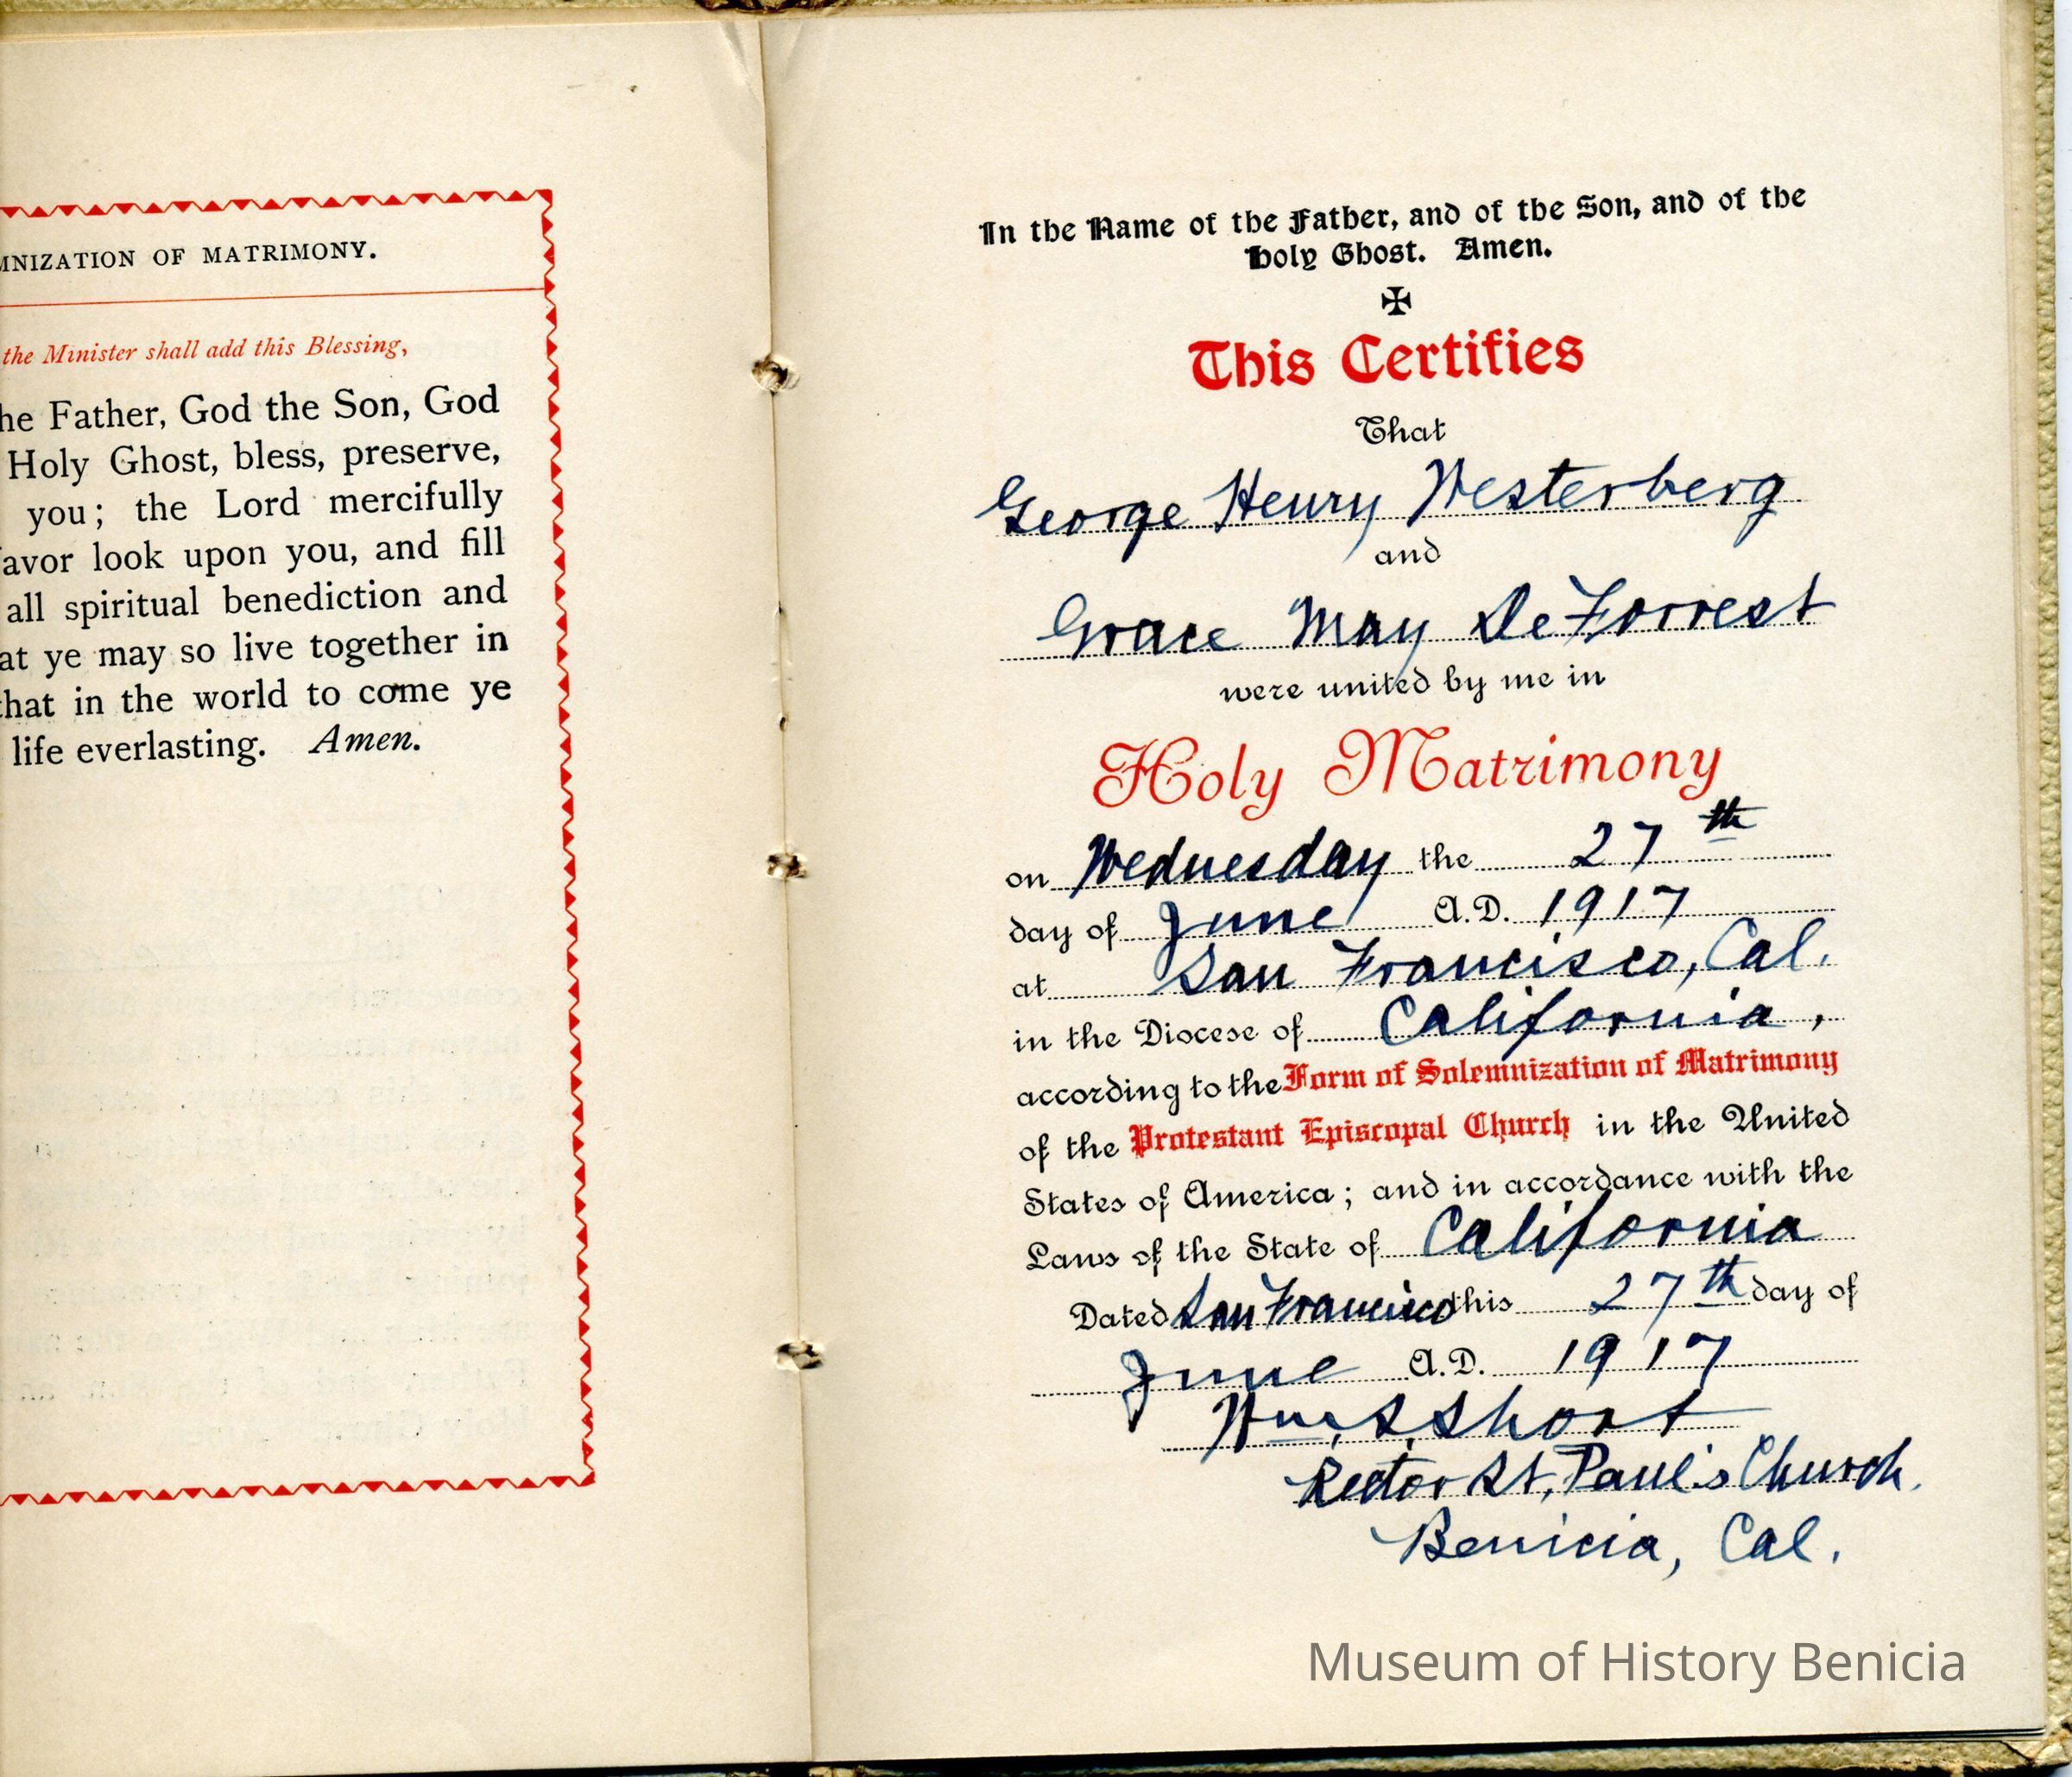 MNIZATION OF MATRIMONY.
the Minister shall add this Blessing,
he Father, God the Son, God
Holy Ghost, bless, preserve,
you; the Lord mercifully
favor look upon you, and fill
all spiritual benediction and
at ye may so live together in
that in the world to come ye
life everlasting. Amen.
In the Name of the Father, and of the Son, and of the
Holy Ghost. Amen.
This Certifies
That
George Henry Westerberg
and
Grace May DeForrest
were united by me in
Holy Matrimony
on Wednesday the 27th
day of June A.D. 1917
at San Francisco, Cal.
in the Diocese of California,
according to the Form of Solemnization of Matrimony
of the Protestant Episcopal Church in the United
States of America; and in accordance with the
Laws of the State of California
Dated San Francisco this 27th day of
June A.D. 1917
Wm. S. Short
Rector St. Paul's Church.
Benicia, Cal.
Museum of History Benicia